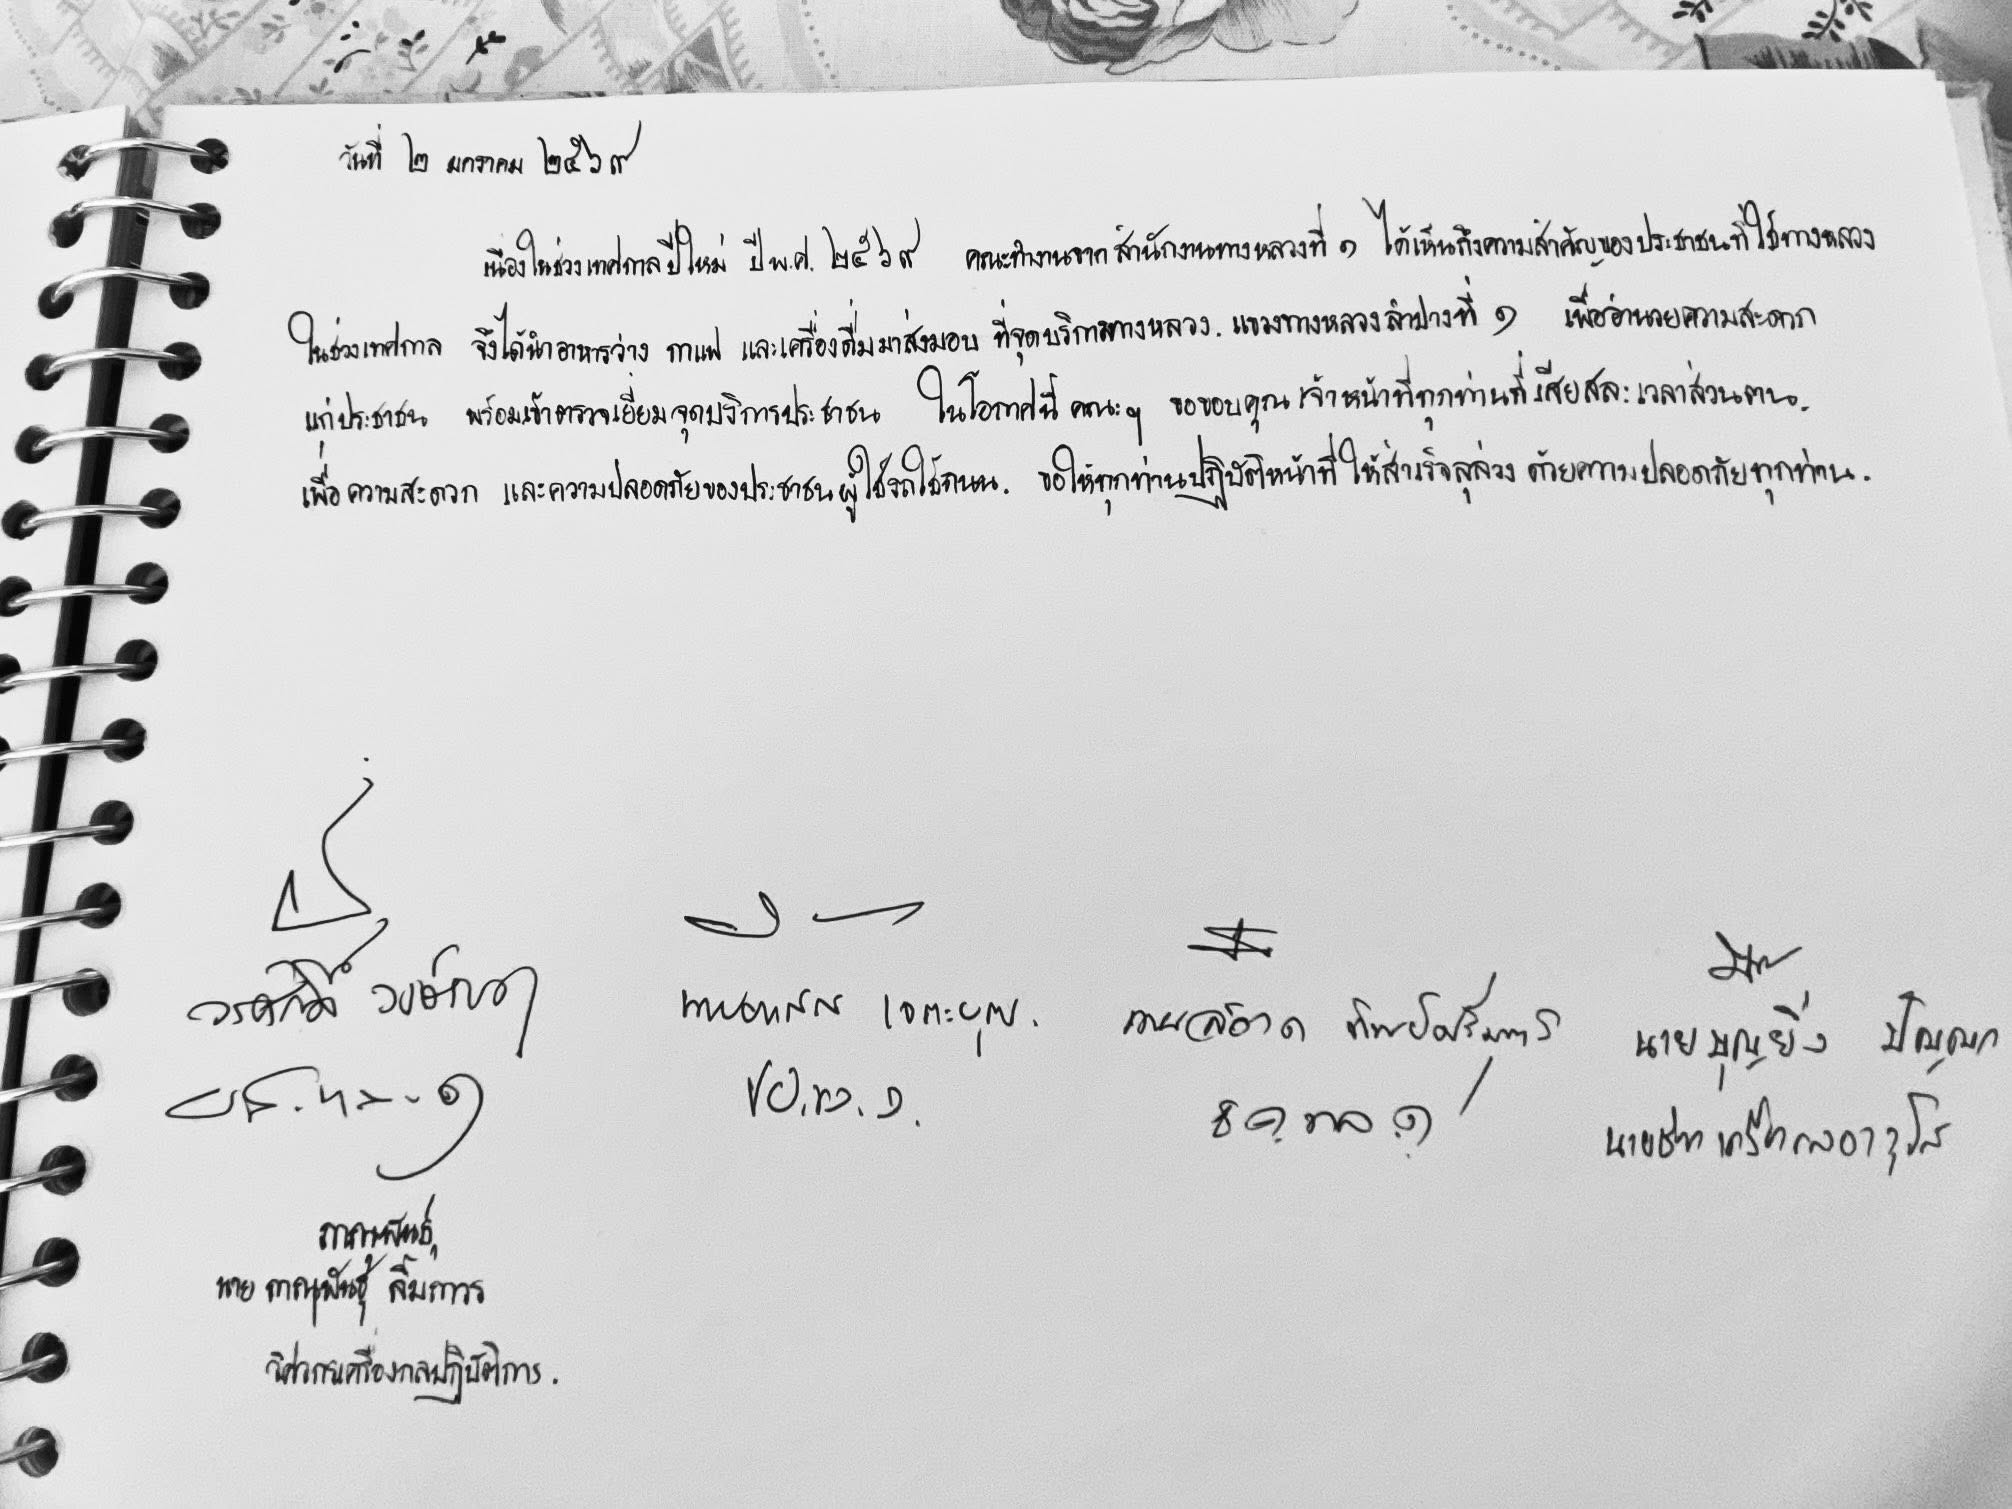 วันที่ ๒ มกราคม ๒๕๖๙
เนื่องในช่วงเทศกาลปีใหม่ ปี พ.ศ. ๒๕๖๙ คณะทำงานจากสำนักงานทางหลวงที่ ๑ ได้เห็นถึงความสำคัญของประชาชนที่ใช้ทางหลวง
ในช่วงเทศกาล จึงได้นำอาหารว่าง กาแฟ และเครื่องดื่มมาส่งมอบ ที่จุดบริการทางหลวง. แขวงทางหลวงลำปางที่ ๑ เพื่ออำนวยความสะดวก
แก่ประชาชน พร้อมเข้าตรวจเยี่ยมจุดบริการประชาชน ในโอกาศนี้ คณะฯ ขอขอบคุณเจ้าหน้าที่ทุกท่านที่เสียสละเวลาส่วนตน.
เพื่อความสะดวก และความปลอดภัยของประชาชนผู้ใช้รถใช้ถนน. ขอให้ทุกท่านปฏิบัติหน้าที่ให้สำเร็จลุล่วง ด้วยความปลอดภัยทุกท่าน.
วรศักดิ์
นายบุญยิ่ง
ภาณุพันธุ์
นาย ภาณุพันธุ์ ลิ้มถาวร
วิศวกรเครื่องกลปฏิบัติการ.